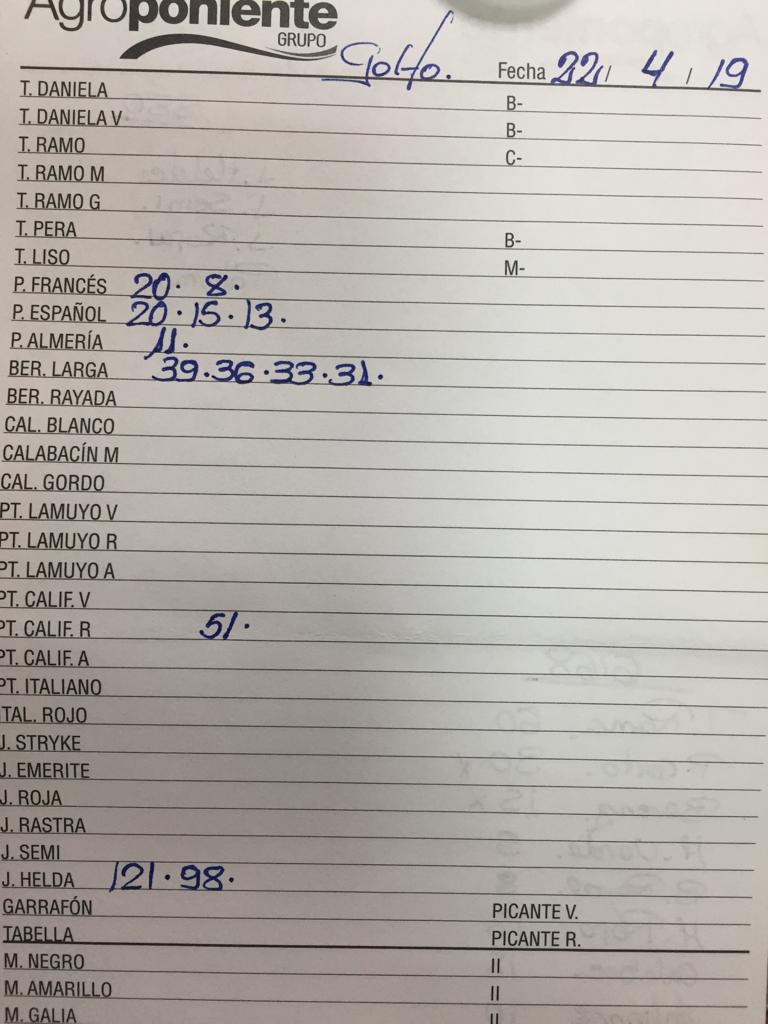 Agroponiente
GRUPO
Golfo. Fecha 22/ 4 / 19
T. DANIELA B-
T. DANIELA V B-
T. RAMO C-
T. RAMO M
T. RAMO G
T. PERA B-
T. LISO M-
P. FRANCÉS 20. 8.
P. ESPAÑOL 20.15.13.
P. ALMERÍA 11.
BER. LARGA 39.36.33.31.
BER. RAYADA
CAL. BLANCO
CALABACÍN M
CAL. GORDO
PT. LAMUYO V
PT. LAMUYO R
PT. LAMUYO A
PT. CALIF. V
PT. CALIF. R 51.
PT. CALIF. A
PT. ITALIANO
ITAL. ROJO
J. STRYKE
J. EMERITE
J. ROJA
J. RASTRA
J. SEMI
J. HELDA 121.98.
GARRAFÓN PICANTE V.
TABELLA PICANTE R.
M. NEGRO II
M. AMARILLO II
M. GALIA II